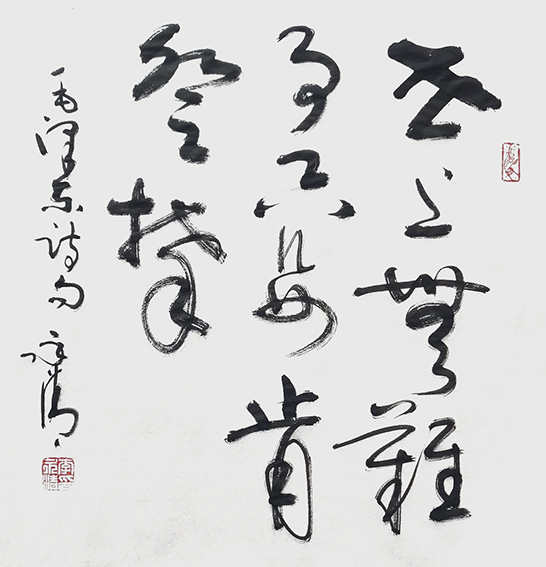 世上無難
事只要肯
登攀
毛泽东诗句